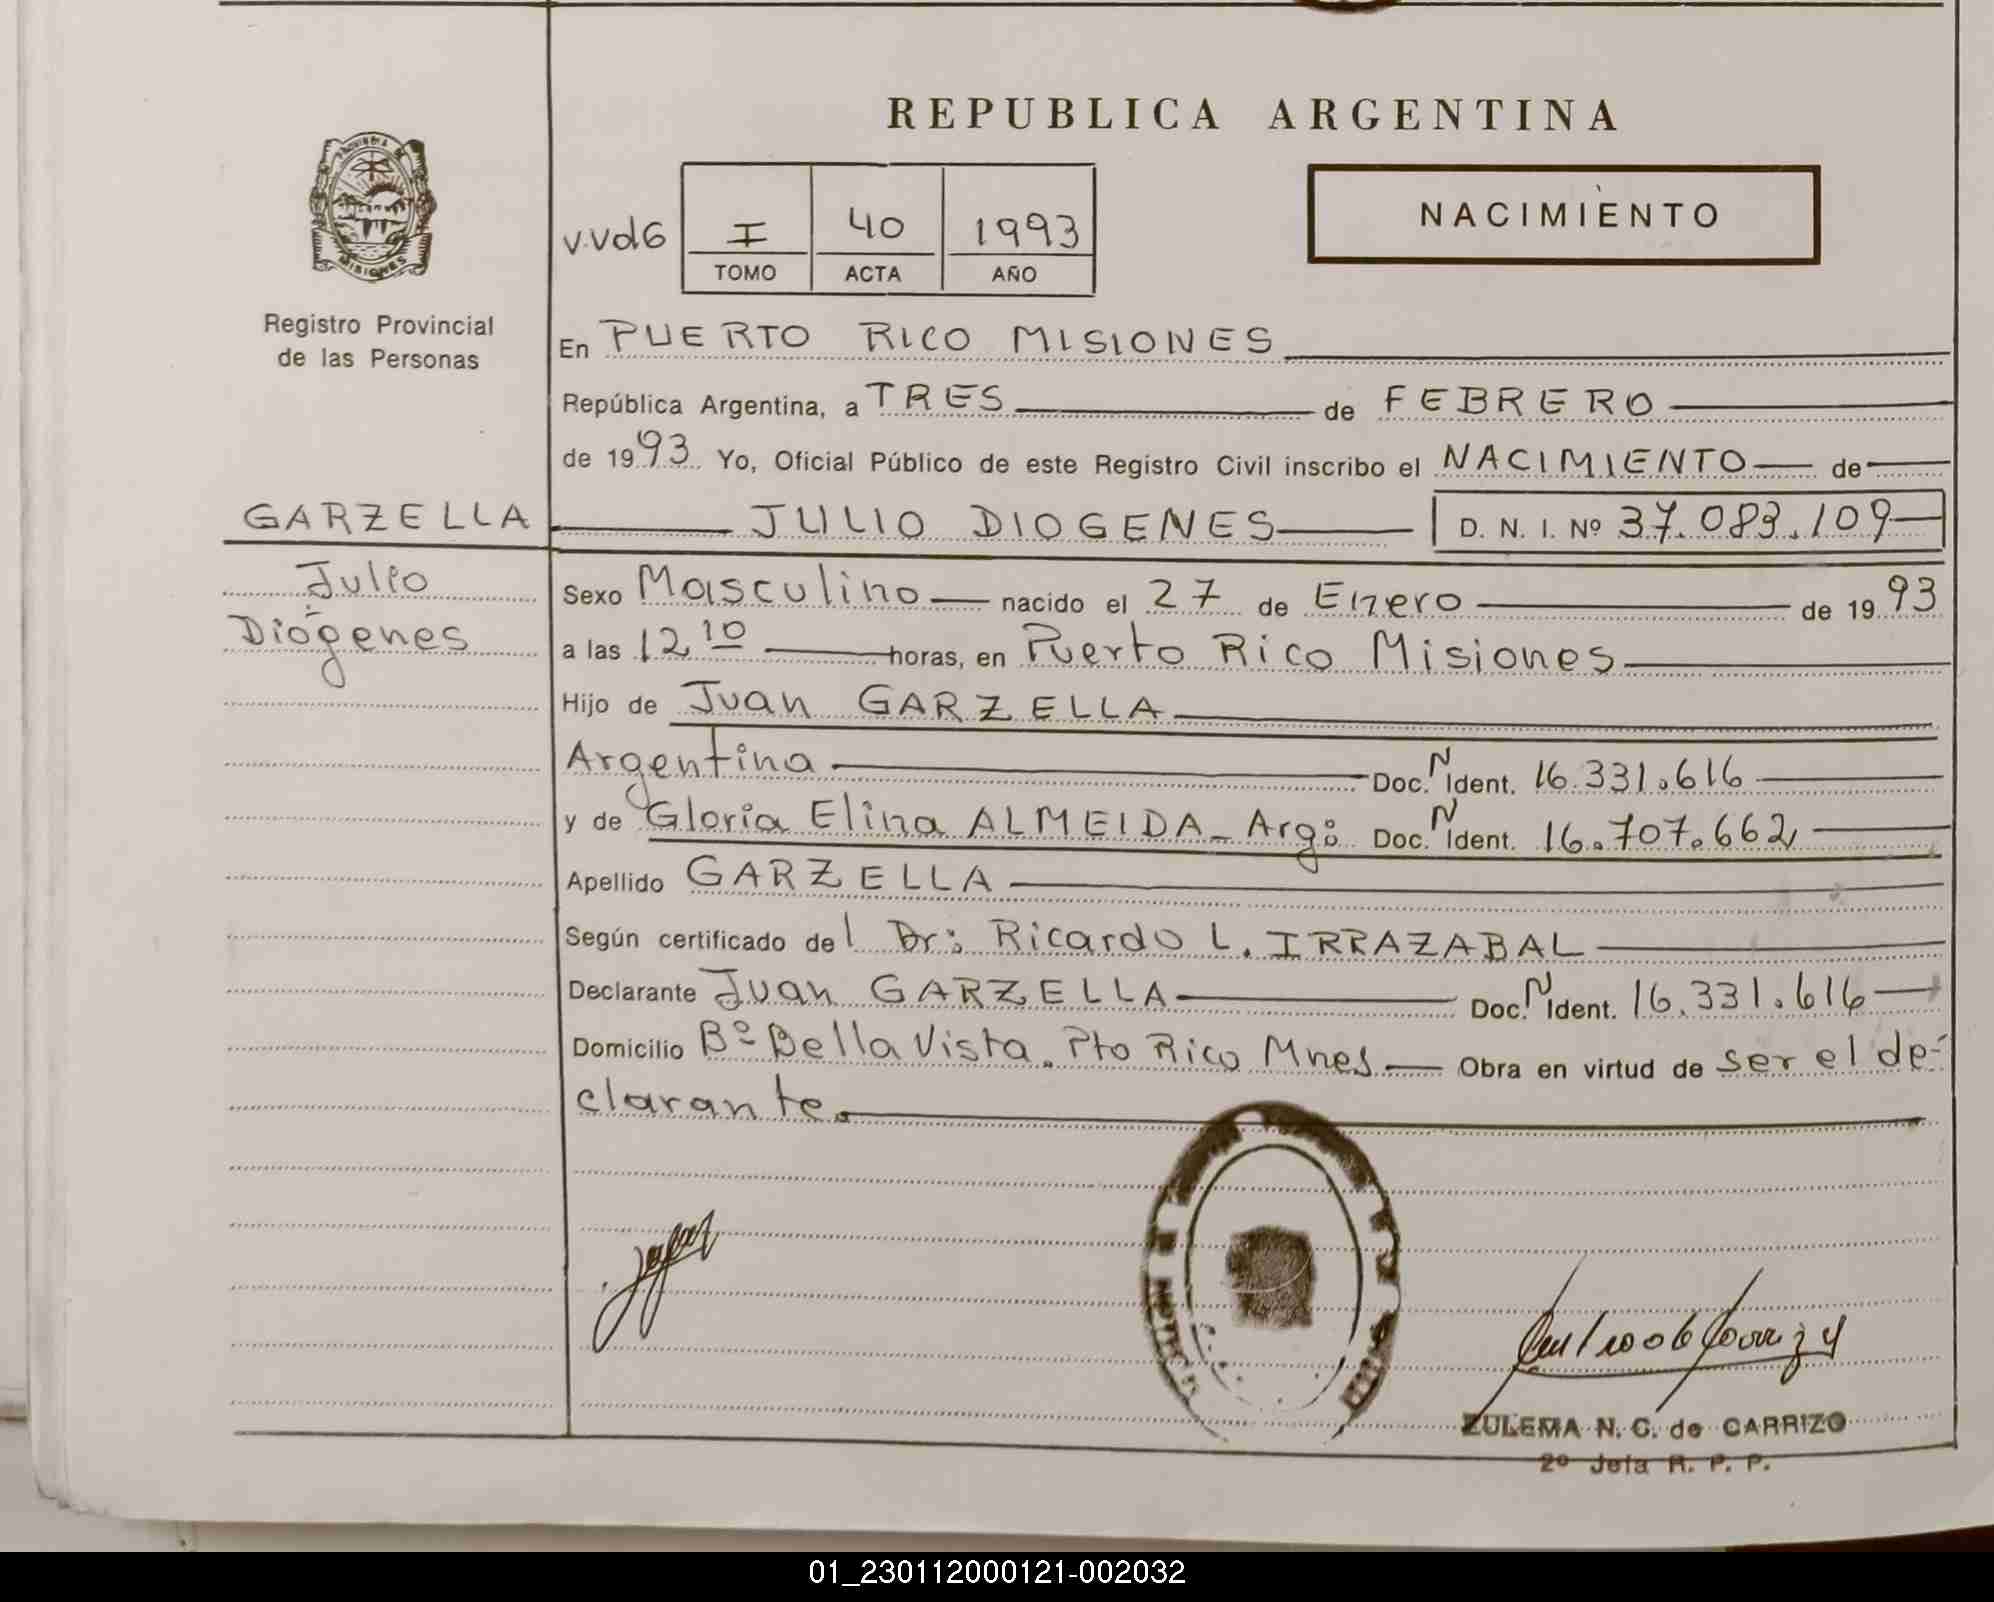 REPUBLICA ARGENTINA
PROVINCIA DE
MISIONES
NACIMIENTO
I 40 1993
TOMO ACTA AÑO
Registro Provincial
de las Personas
En PUERTO RICO MISIONES
República Argentina, a TRES de FEBRERO
de 1993 Yo, Oficial Público de este Registro Civil inscribo el NACIMIENTO de
GARZELLA JULIO DIOGENES D. N. I. Nº 37.083.109
Julio
Diógenes
Sexo Masculino nacido el 27 de Enero de 1993
a las 12 10 horas, en Puerto Rico Misiones
Hijo de Juan GARZELLA
Argentina Doc. N Ident. 16.331.616
y de Gloria Elina ALMEIDA - Arg: Doc. N Ident. 16.707.662
Apellido GARZELLA
Según certificado del Dr: Ricardo L. IRRAZABAL
Declarante Juan GARZELLA Doc. N Ident. 16.331.616
Domicilio Bº Bella Vista. Pto Rico Mnes Obra en virtud de ser el de-
clarante.
ZULEMA N. C. de CARRIZO
2º Jefa R. P. P.
01_230112000121-002032